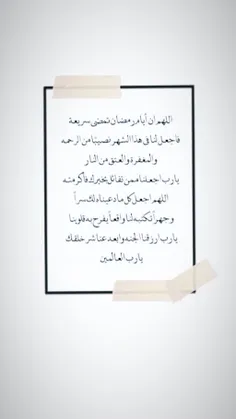 اللهم ان أيام رمضان تمضي سريعة
فاجعل لنا في هذا الشهر نصيبًا من الرحمه
والمغفرة والعتق من النار
يارب اجعلنا ممن تفائل بخيرك فأكرمته
اللهم اجعل كل ما دعيناه لك سراً
وجهراً تكتبه لنا واقعاً يفرح به قلوبنا
يارب ارزقنا الجنه وابعد عنا شر خلقك
يارب العالمين